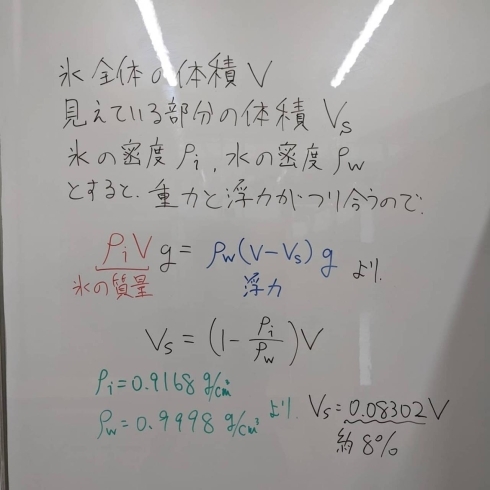 氷全体の体積 V
見えている部分の体積 Vs
氷の密度 ρi, 水の密度 ρw
とすると、重力と浮力がつり合うので、
ρiVg = ρw(V-Vs)g より、
氷の質量 浮力
Vs = (1 - ρi/ρw)V
ρi = 0.9168 g/cm³
ρw = 0.9998 g/cm³ より、Vs = 0.08302V
約8%